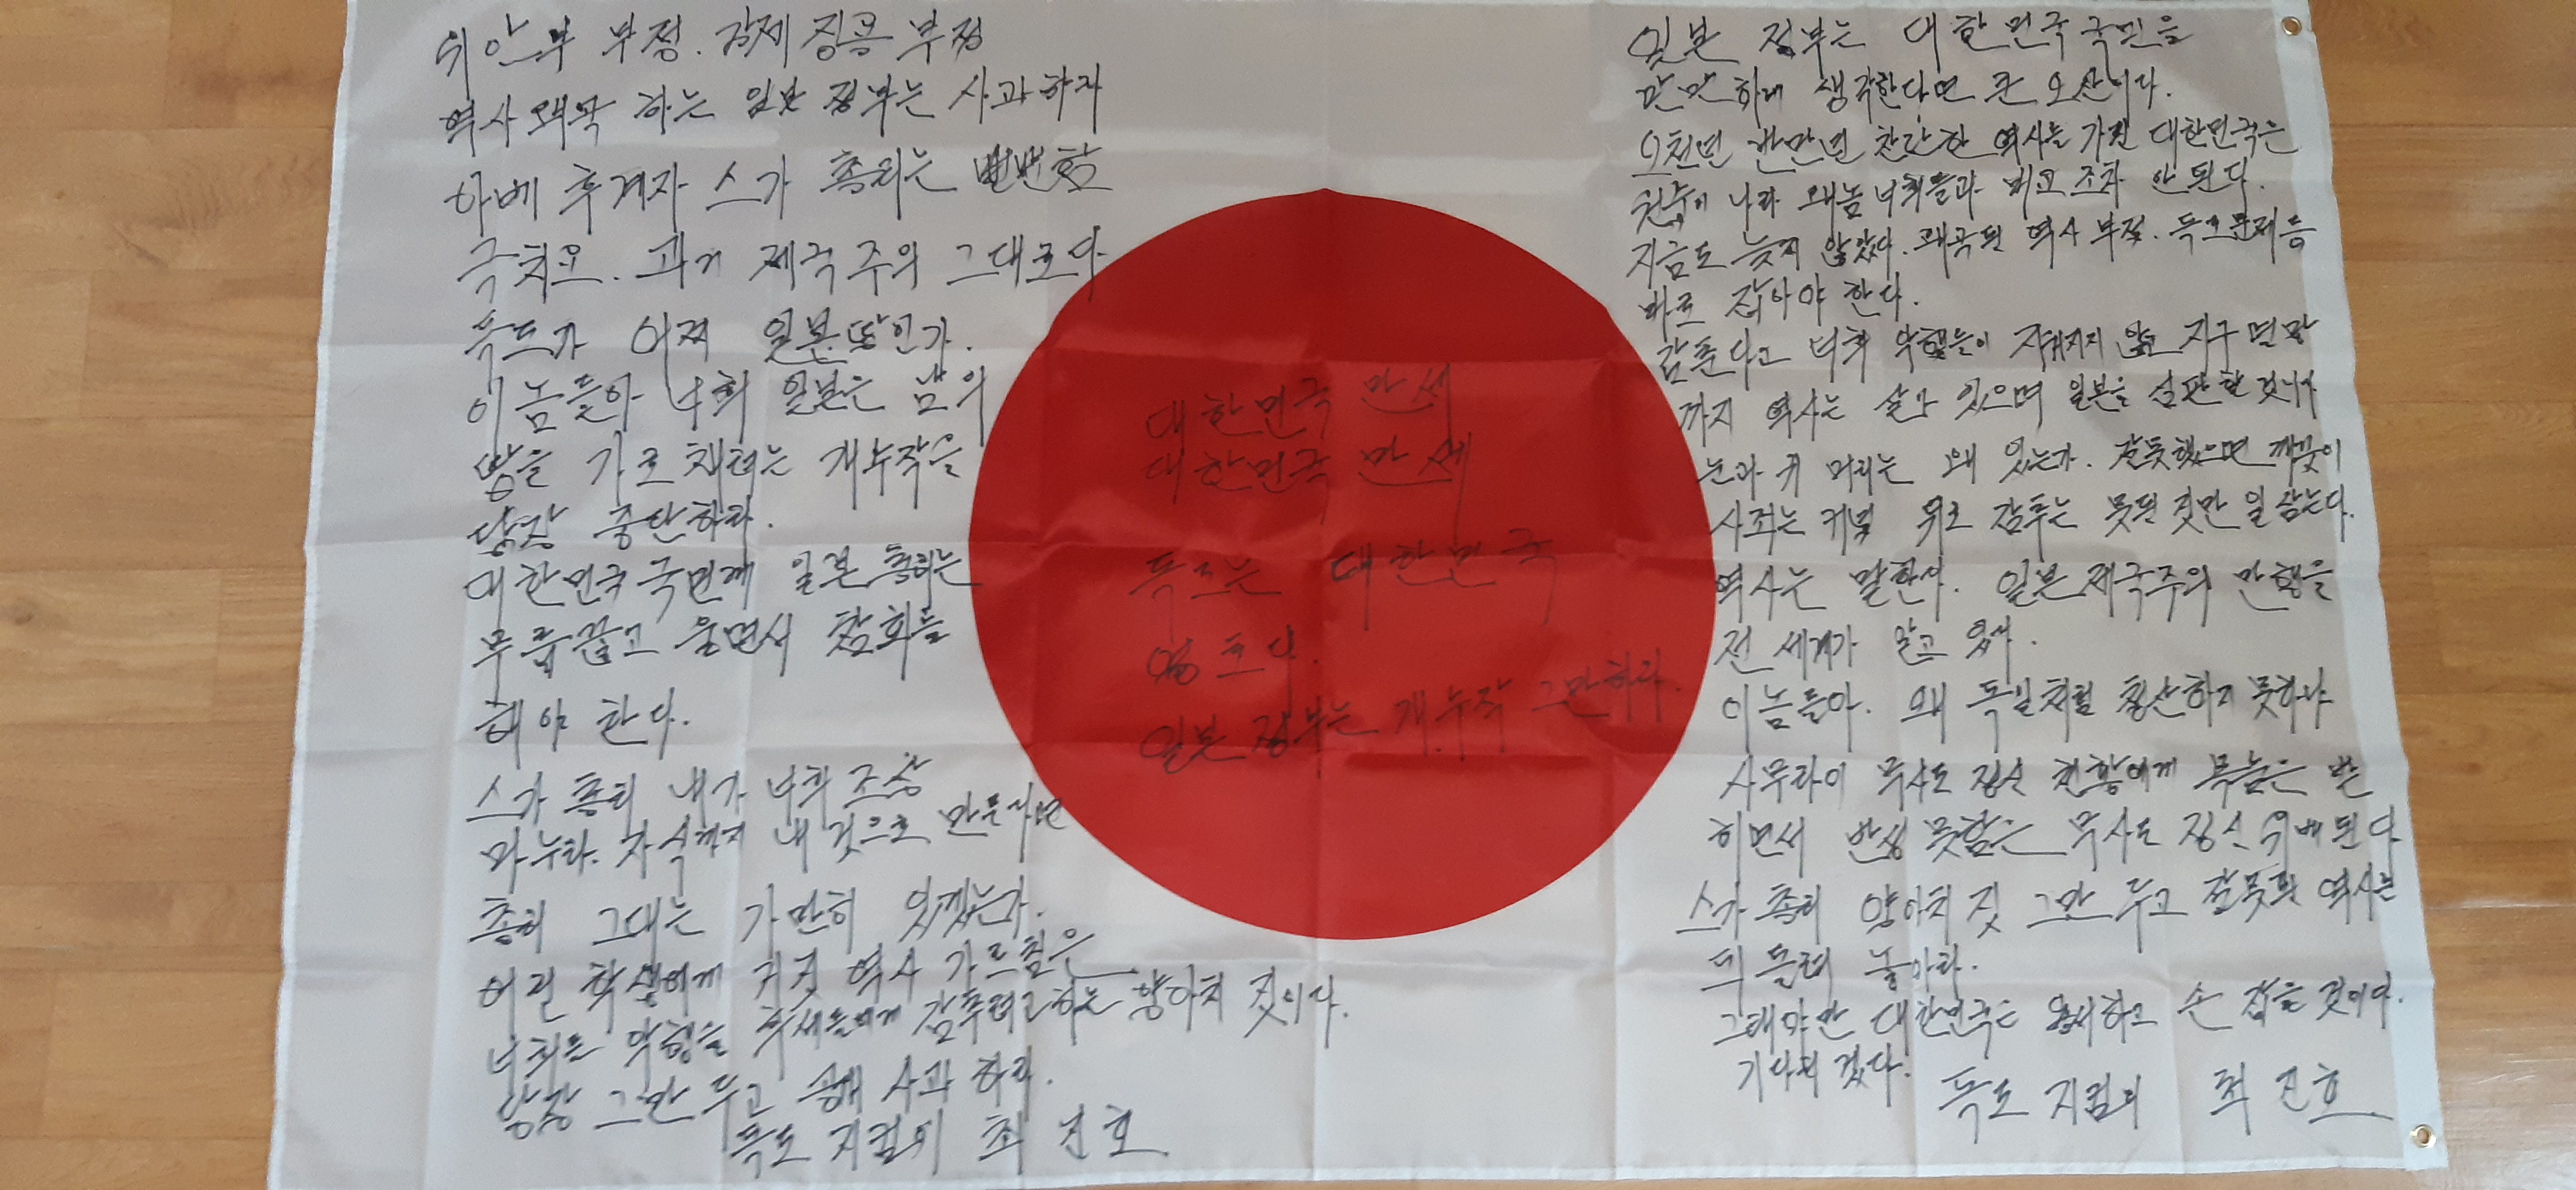 위안부 부정. 강제 징용 부정
역사 왜곡 하는 일본 정부는 사과하라
아베 후계자 스가 총리는 뻔뻔함
극치요. 과거 제국주의 그대로다
독도가 어찌 일본땅인가.
이놈들아 너희 일본은 남의
땅을 가로채려는 개수작을
당장 중단하라.
대한민국 국민께 일본 총리는
무릎꿇고 울면서 참회를
해야 한다.
스가 총리 내가 너희 조상
마누라. 자식까지 내 것으로 만든다면
총리 그대는 가만히 있겠는가.
어린 학생에게 거짓 역사 가르침은
너희는 악행을 후세들에게 감추려고하는 양아치 짓이다.
당장 그만 두고 공개 사과 하라.
독도 지킴이 최 진호
대한민국 만세
대한민국 만세
독도는 대한민국
영토다.
일본 정부는 개수작 그만하라.
일본 정부는 대한민국 국민을
만만하게 생각한다면 큰 오산이다.
오천년 반만년 찬란한 역사를 가진 대한민국은
원수의 나라 왜놈 너희들과 비교 조차 안된다.
지금도 늦지 않았다. 왜곡된 역사 부정. 독도문제등
바로 잡아야 한다.
감춘다고 너희 악행들이 지워지지 않고 지구 멸망
까지 역사는 살아 있으며 일본을 심판할 것이다
눈과 귀 머리는 왜 있는가. 잘못했으면 깨끗이
사죄는 커녕 뒤로 감추는 못된 짓만 일삼는다.
역사는 말한다. 일본 제국주의 만행을
전 세계가 알고 있다.
이놈들아. 왜 독일처럼 청산하지 못하냐
사무라이 무사도 정신 천황에게 목숨은 받
히면서 반성 못함은 무사도 정신 위배된다
스가 총리 양아치 짓 그만 두고 잘못된 역사는
되 돌려 놓아라.
그래야만 대한민국은 용서하고 손 잡을 것이다.
기다리 겠다.
독도 지킴이 최 진호